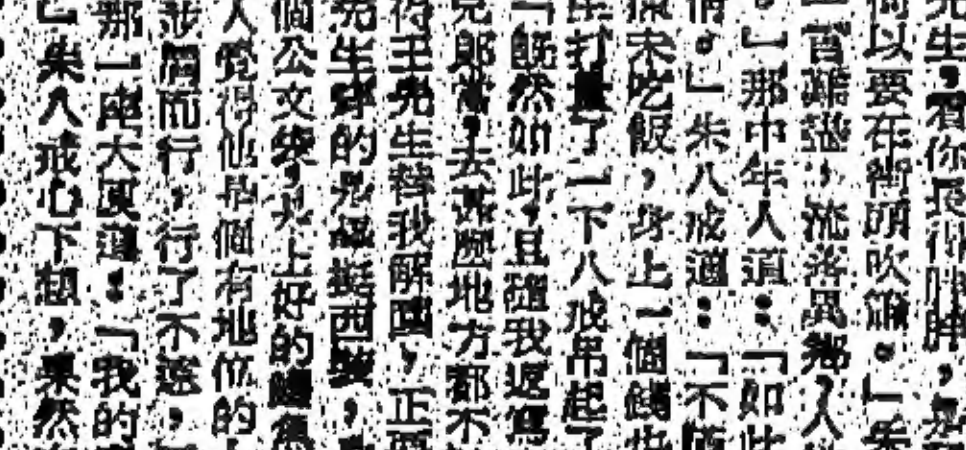 先生，看你長得胖胖，
何以要在街頭吹簫。」朱
一言難盡，流落異鄉人
。」那中年人道：「如此
情。」朱八戒道：「不
未吃飯，身上一個錢也
打量了一下八戒吊起了
「既然如此，且隨我返寓
見郎當，去甚麼地方都不
得王先生替我解圍，正要
先生穿的是一幅挺西裝，
個公文夾，是上好的
人覺得他是個有地位的
步履而行，行了不遠，
那一座大廈道：「我的
朱八戒心下想，果然